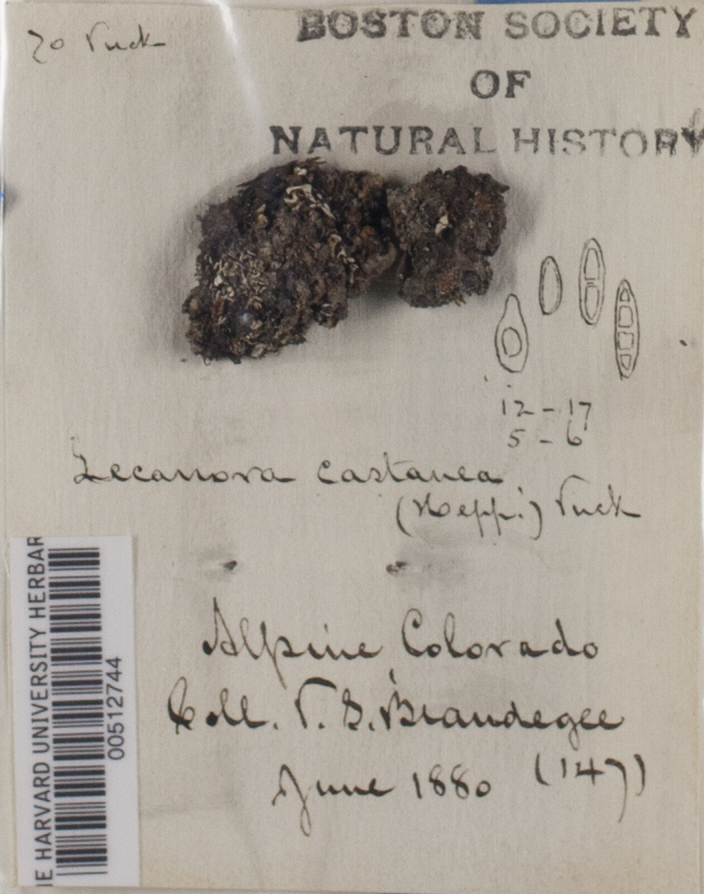 70 Tuck
BOSTON SOCIETY
OF
NATURAL HISTORY
12-17
5-6
Lecanora castanea
(Hepp.) Tuck
Alpine Colorado
Coll. T. S. Brandegee
June 1880 (147)
E HARVARD UNIVERSITY HERBAR
00512744